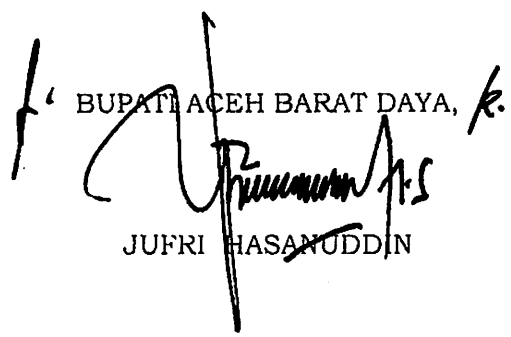 BUPATI ACEH BARAT DAYA,
JUFRI HASANUDDIN